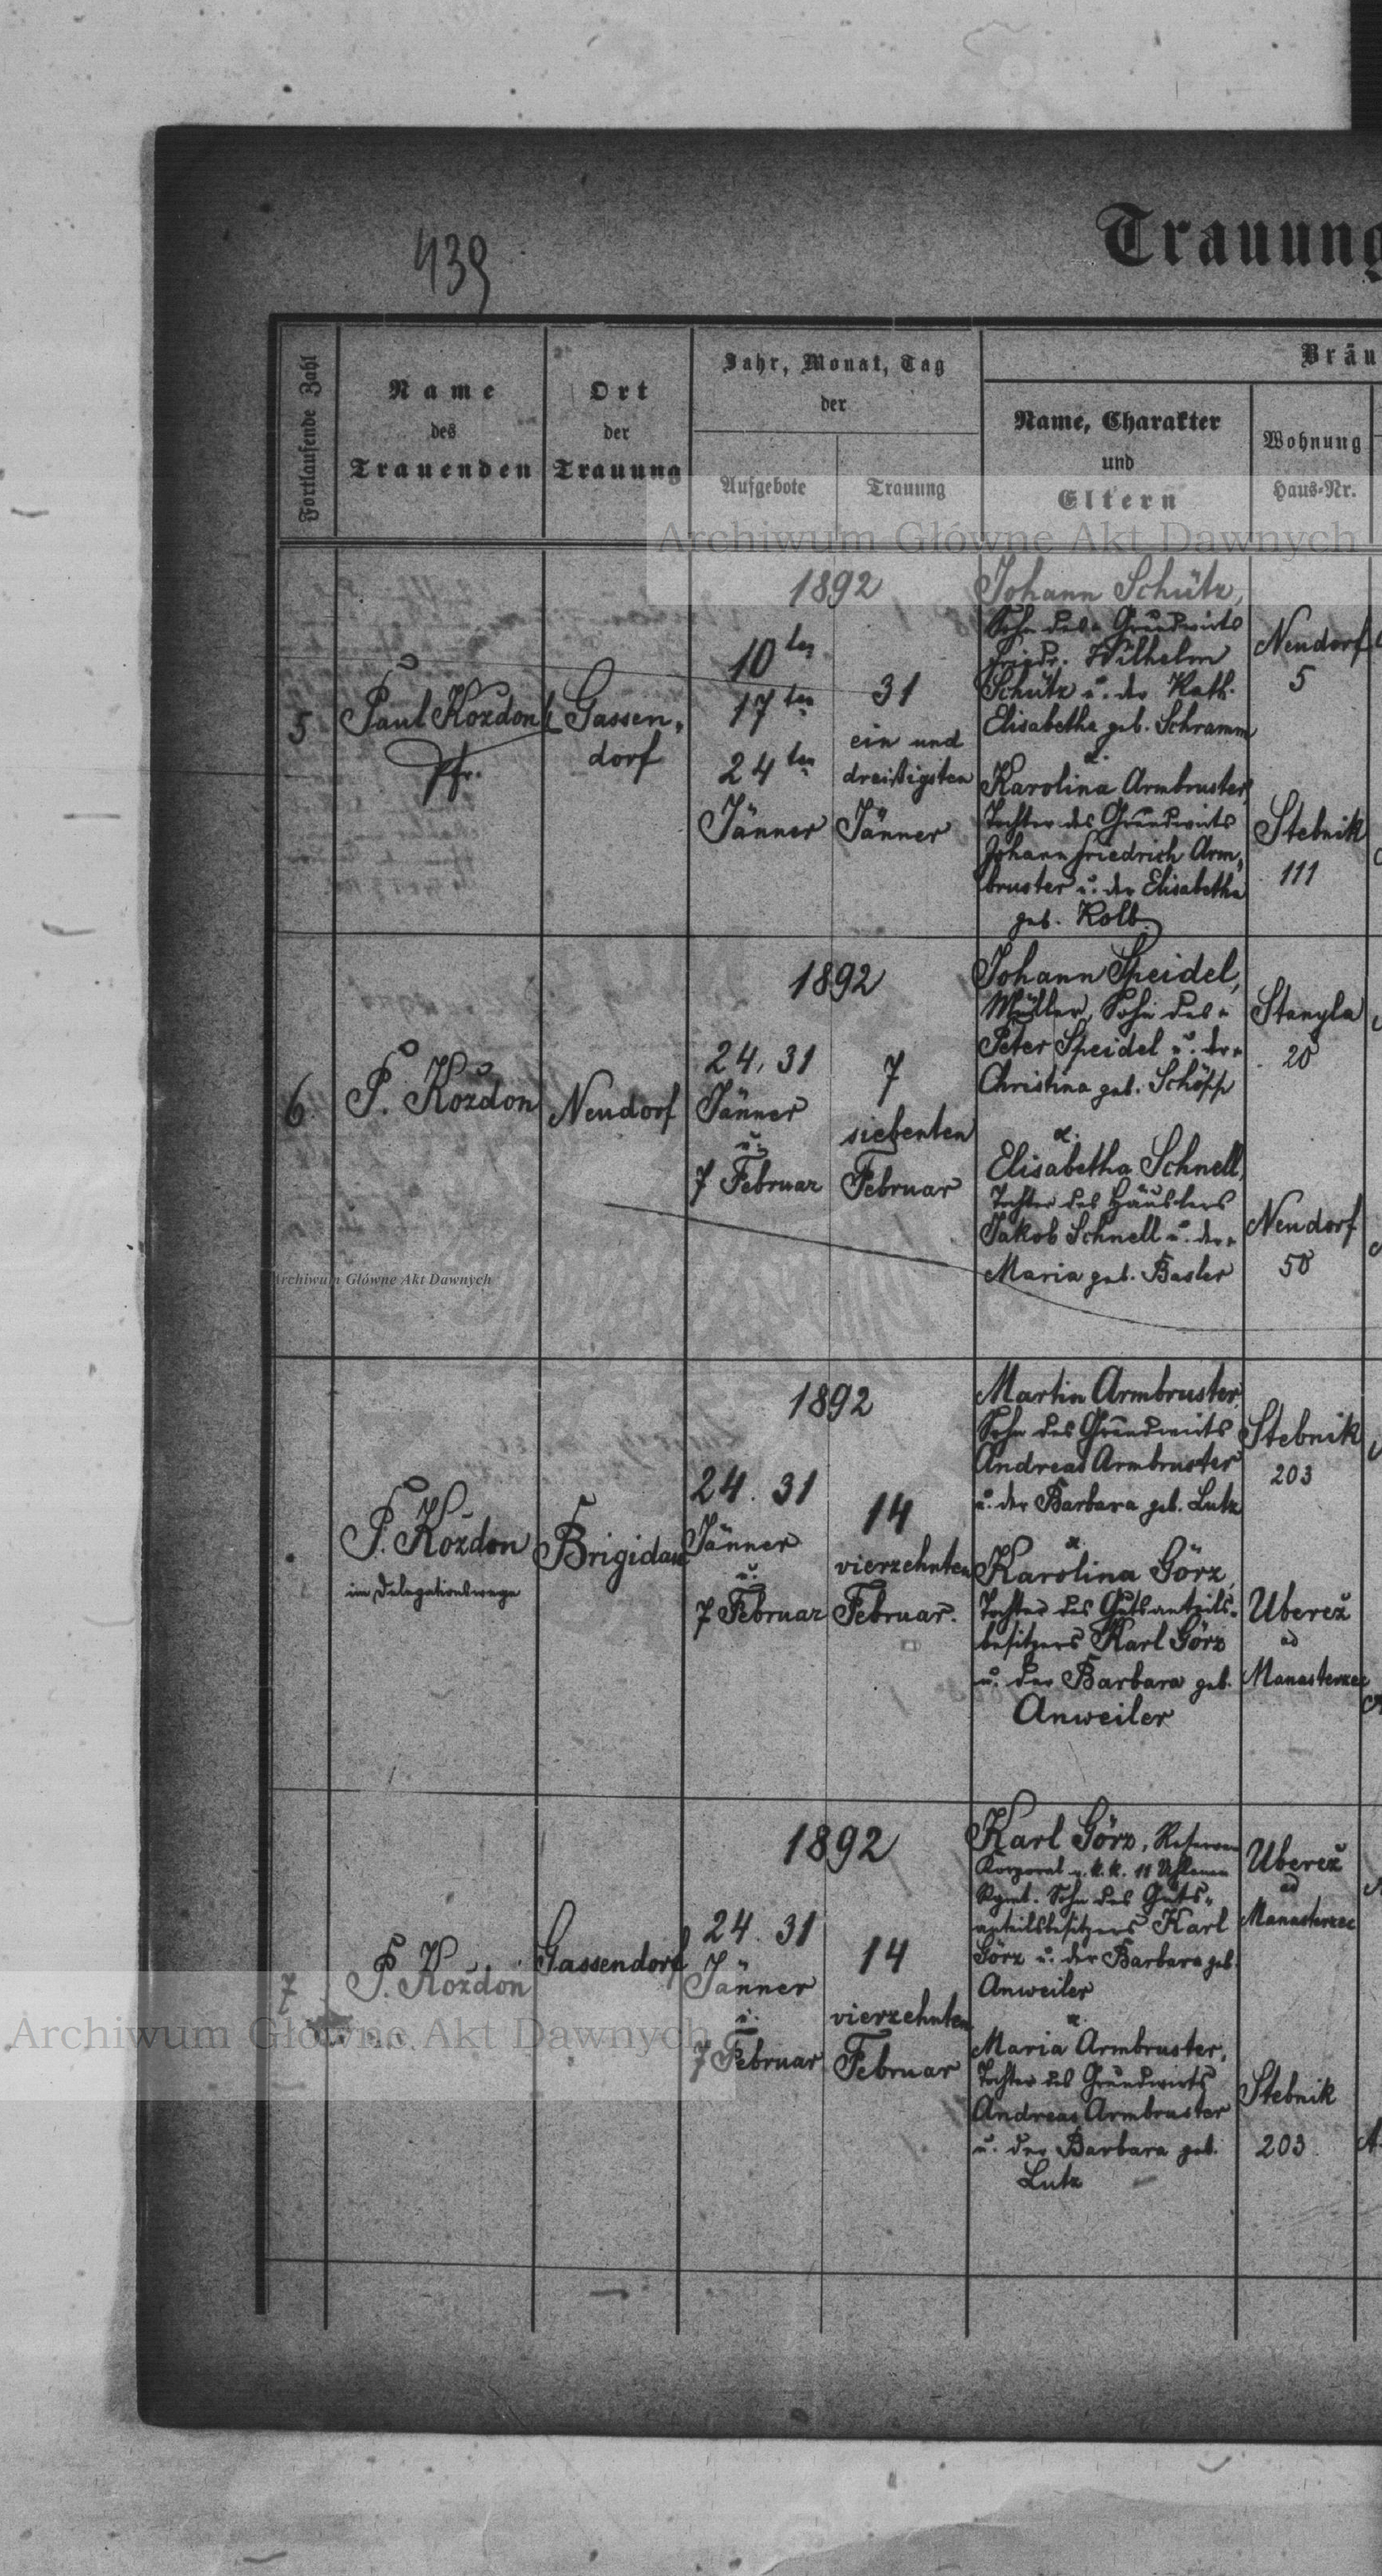 439
Trauung
Fortlaufende Zahl
Name
des
Trauenden
Ort
der
Trauung
Jahr, Monat, Tag
der
Aufgebote
Trauung
Bräu
Name, Charakter
und
Eltern
Wohnung
Haus-Nr.
Archiwum Główne Akt Dawnych
5
Paul Kozdon
Pfr.
Gassen,
dorf
1892
10ten
17ten
24ten
Jänner
31
ein und
dreißigsten
Jänner
Johann Schütz,
Sohn des Grundwirts
Friedr. Wilhelm
Schütz u. der Kath.
Elisabetha geb. Schramm
&.
Karolina Armbruster,
Tochter des Grundwirts
Johann Friedrich Arm,
bruster u. der Elisabetha
geb. Kolb.
Neudorf
5
Stebnik
111
6.
P. Koždon
Neudorf
1892
24, 31
Jänner
u.
7 Februar
7
siebenten
Februar
Johann Speidel,
Müller, Sohn des
Peter Speidel u. der
Christina geb. Schöpp
&.
Elisabetha Schnell,
Tochter des Häuslers
Jakob Schnell u. der
Maria geb. Basler
Stanyla
20
Neudorf
50
Archiwum Główne Akt Dawnych
P. Koždon
im Delegationswege
Brigidau
1892
24. 31
Jänner
u.
7 Februar
14
vierzehnten
Februar.
Martin Armbruster,
Sohn des Grundwirts
Andreas Armbruster
u. der Barbara geb. Lutz
&
Karolina Görz,
Tochter des Gutsanteils-
besitzers Karl Görz
u. der Barbara geb.
Anweiler
Stebnik
203
Uberež
ad
Manasterzec
7
P. Koždon
Gassendorf
1892
24. 31
Jänner
u.
7 Februar
14
vierzehnten
Februar
Karl Görz, Reserve
Korporal k. k. 11 Uhlanen
Rgmt. Sohn des Guts-
anteilsbesitzers Karl
Görz u. der Barbara geb.
Anweiler
&
Maria Armbruster,
Tochter des Grundwirts
Andreas Armbruster
u. der Barbara geb.
Lutz
Uberež
ad
Manasterzec
Stebnik
203
Archiwum Główne Akt Dawnych